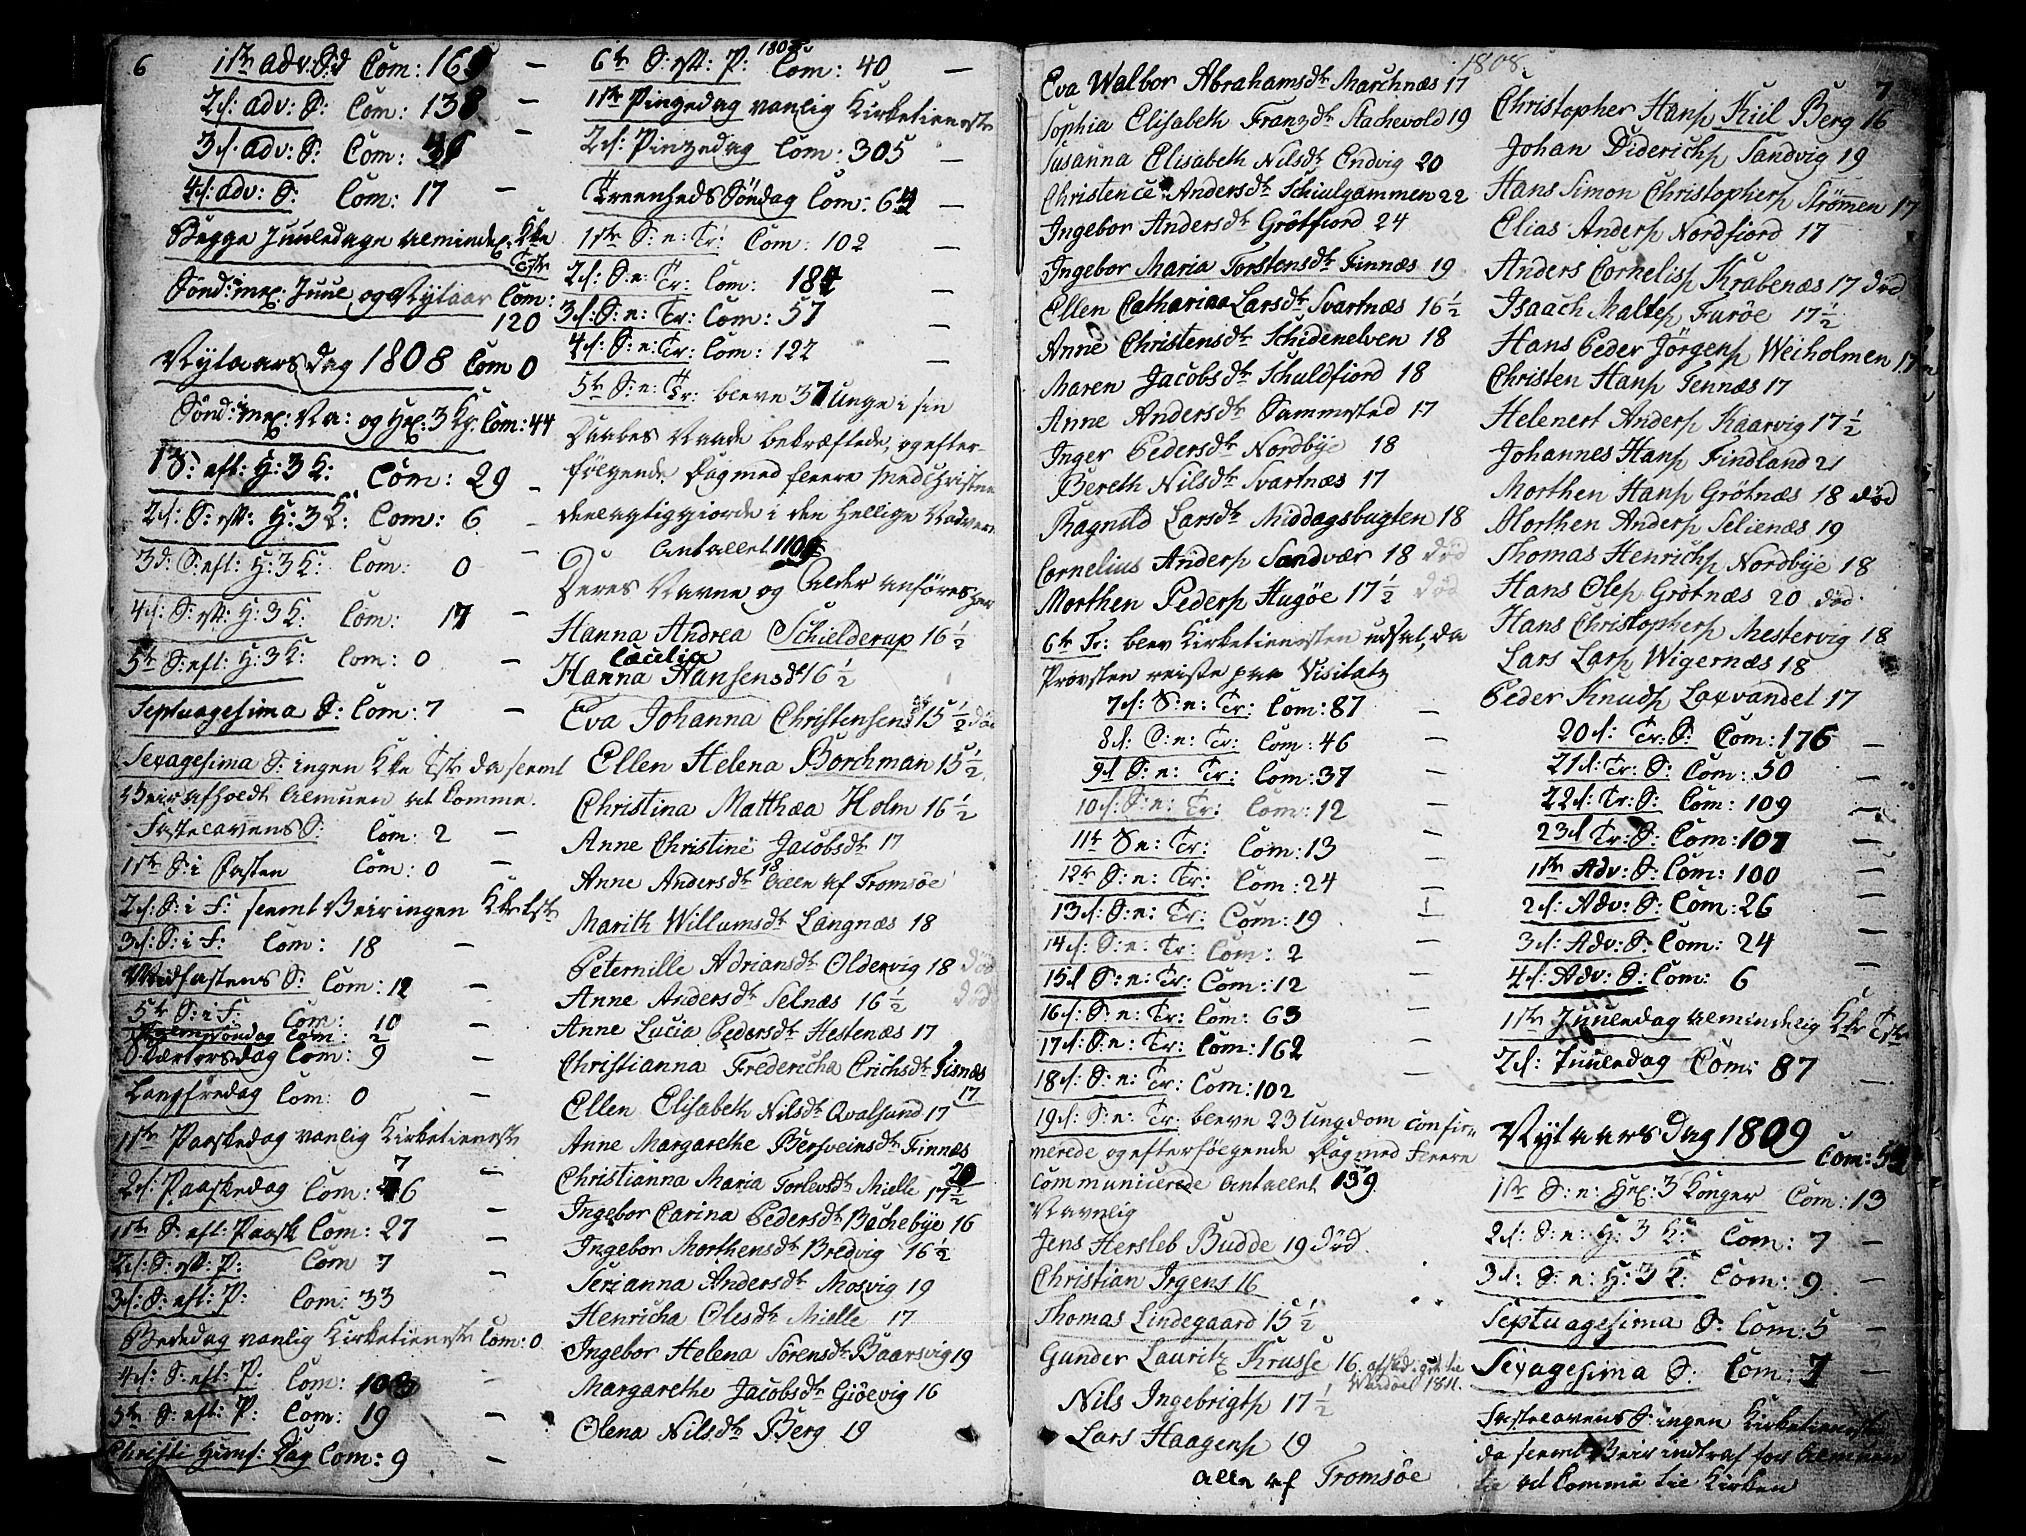 6
1ste Adv: Sd Com: 169 —
2d: Adv: S: Com: 138 —
3d. Adv: S: Com: 36 —
4d: Adv: S: Com: 17 —
Begge Juuledage almindel: Kke
Tste
Sönd: mel: Juul og Nytaar Com:
120
Nytaarsdag 1808 Com 0
Sönd: mel: Na: og Hel: 3 Kg. Com: 44
1 S: eft: H: 3 K: Com: 29 —
2d: S: eft: H: 3 K: Com: 6 —
3d: S: eft: H: 3 K: Com: 0 —
4d: S: eft: H: 3 K: Com: 17 —
5te S: eft: H: 3 K: Com: 0 —
Septuagesima S: Com: 7 —
Sexagesima S: ingen Kke Tste da slemt
Veir afholdt Almuen at komme.
Fastelavens S: Com: 2 —
1ste S: i Fasten Com: 0 —
2d: S: i F: slemt Veir ingen Kketste
3d: S: i F: Com: 18 —
Midfastens S: Com: 12 —
5te S: i F: Com: 10 —
Palmesöndag Com: 2
Skiertorsdag Com: 9 —
Langfredag Com: 0 —
1ste Paaskedag vanlig Kirketieneste
2d: Paaskedag Com: 76 —
1ste S: eft: Paask Com: 27 —
2d: S: eft: P: Com 7 —
3d: S: eft: P: Com: 33
Bededag vanlig Kirketieneste Com: 0
4d: S: eft: P: Com: 103 —
5te S: eft: P: Com: 19 —
Christi Himf: Dag Com: 9 —
1808
6te S: eft: P: Com: 40 —
1ste Pinzedag vanlig Kirketieneste
2d: Pinzedag Com: 305 —
Treenheds Söndag Com: 64 —
1ste S: e: Tr: Com: 102 —
2d: S: e: Tr: Com: 184 —
3d: S: e: Tr: Com: 57 —
4d: S: e: Tr: Com: 122 —
5te S: e: Tr: bleve 37 Unge i sin
Daabes Naade bekræftede, og efter-
følgende Dag med fleere Med Christne
deelagtiggiorde i den Hellige Nadvere
Antallet 110
Deres Navne og Alder anføres her
Hanna Andrea Schielderup 16 ½
Cæcilia
Hanna Hansensdt 16 ½
Eva Johanna Christensens dt 15 ½ död
Ellen Helena Borchman 15 ½.
Christina Matthæa Holm 16 ½
Anne Christine Jacobsdt 17
Anne Andersdt 18 Alle af Tromsöe
Marith Willumsdt Langnæs 18
Peternille Adriansdt Oldervig 18 död
Anne Andersdt Selnæs 16 ½ död
Anne Lucia Pedersdt Hestenæs 17
Christianna Fredericha Erichsdt Sisnæs
17
Ellen Elisabeth Nilsdt Qvalsund 17
Anne Margarethe Bersveinsdt Finnæs
20
Christianna Maria Torlevsdt Mielle 17 ½
Ingebor Carina Pedersdt Bachebye 16
Ingebor Morthensdt Bredvig 16 ½
Serianna Andersdt Mosvig 19
Henricha Olesdt Mielle 17
Ingebor Helena Sörensdt Baarsvig 19
Margarethe Jacobsdt Giöevig 16
Olena Nilsdt Berg 19
1808
Eva Walbor Abrahamsdt Marchnæs 17
Sophia Elisabeth Franzdt Stachevold 19
Susanna Elisabeth Nilsdt Endvig 20
Christence Andersdt Schiulgammen 22
Ingebor Andersdt Grötfiord 24
Ingebor Maria Torstensdt Finnæs 19
Ellen Catharina Larsdt Svartnæs 16 ½
Anne Christensdt Schidenelven 18
Maren Jacobsdt Schuldfiord 18
Anne Andersdt Sammsted 17
Inger Pedersdt Nordbye 18
Bereth Nilsdt Svartnæs 17
Ragnild Larsdt Middagsbugten 18
Cornelius Andersp Sandvær 18 död
Morthen Pedersp Hugöe 17 ½ död
6te Tr: blev Kirketienesten udsat, da
Provsten reiste paa Visitatz
7d: S: e: Tr: Com: 87 —
8d: S: e: Tr: Com: 46 —
9d S: e: Tr: Com: 37 —
10d: S: e: Tr: Com: 12 —
11te S e: Tr: Com: 13 —
12te S: e: Tr: Com: 24 —
13d: S: e: Tr: Com: 19
14d: S: e: Tr: Com: 2 —
15d S: e: Tr: Com: 12 —
16d: S: e: Tr: Com: 63 —
17d: S: e: Tr: Com: 162 —
18d: S: e: Tr: Com: 102 —
19d: S: e: Tr: bleve 23 Ungdom confir-
merede og efterfölgende Dag med Fleere
Communicerede Antallet 139
Navnlig
Jens Hersleb Budde 19 Död.
Christian Irgens 16
Thomas Lindegaard 15 ½
Gunder Lauritz Krusse 16
Wardöe 1811.
Nils Ingebrigtp 17 ½
Lars Haagensp 19
Alle af Tromsöe
7
Christopher Hansp Kiil Berg 16
Johan Diderichp Sandvig 19
Hans Simon Christophersp Strömen 17
Elias Andersp Nordfiord 17
Anders Cornelisp Krabenæs 17 död
Isaach Maltesp Furöe 17 ½
Hans Peder Jörgensp Weiholmen 17
Christen Hansp Tennæs 17
Helenert Andersp Kaarvig 17 ½
Johannes Hansp Findland 21
Morthen Hansp Grötnæs 18 död
Morthen Andersp Selienæs 19
Thomas Henrichp Nordbye 18
Hans Olesp Grötnæs 20 död.
Hans Christophersp Mestervig 18
Lars Larsp Wigernæs 18
Peder Knudsp Laxvandet 17
20d: Tr: S: Com: 176 —
21d: Tr: S: Com: 50 —
22d: Tr: S: Com: 109 —
23d Tr: S: Com: 107 —
1ste Adv: S: Com: 100 —
2d: Adv: S: Com: 26 —
3d: Adv: S: Com: 24 —
4d: Adv: S: Com: 6 —
1ste Juuledag almindelig Kke Tste
2d: Juuledag Com: 87 —
Nytaarsdag 1809
Com: 54
1ste S: e: Hel: 3 Konger Com: 13
2d: S: e: H: 3 K: Com: 7 —
3d: S: e: H: 3 K: Com: 9 —
Septuagesima S: Com: 5 —
Sexagesima S: Com: 7 —
Fastelavens S: ingen Kirketieneste
da slemt Veir indtraf for Almuen
til at komme til Kirken